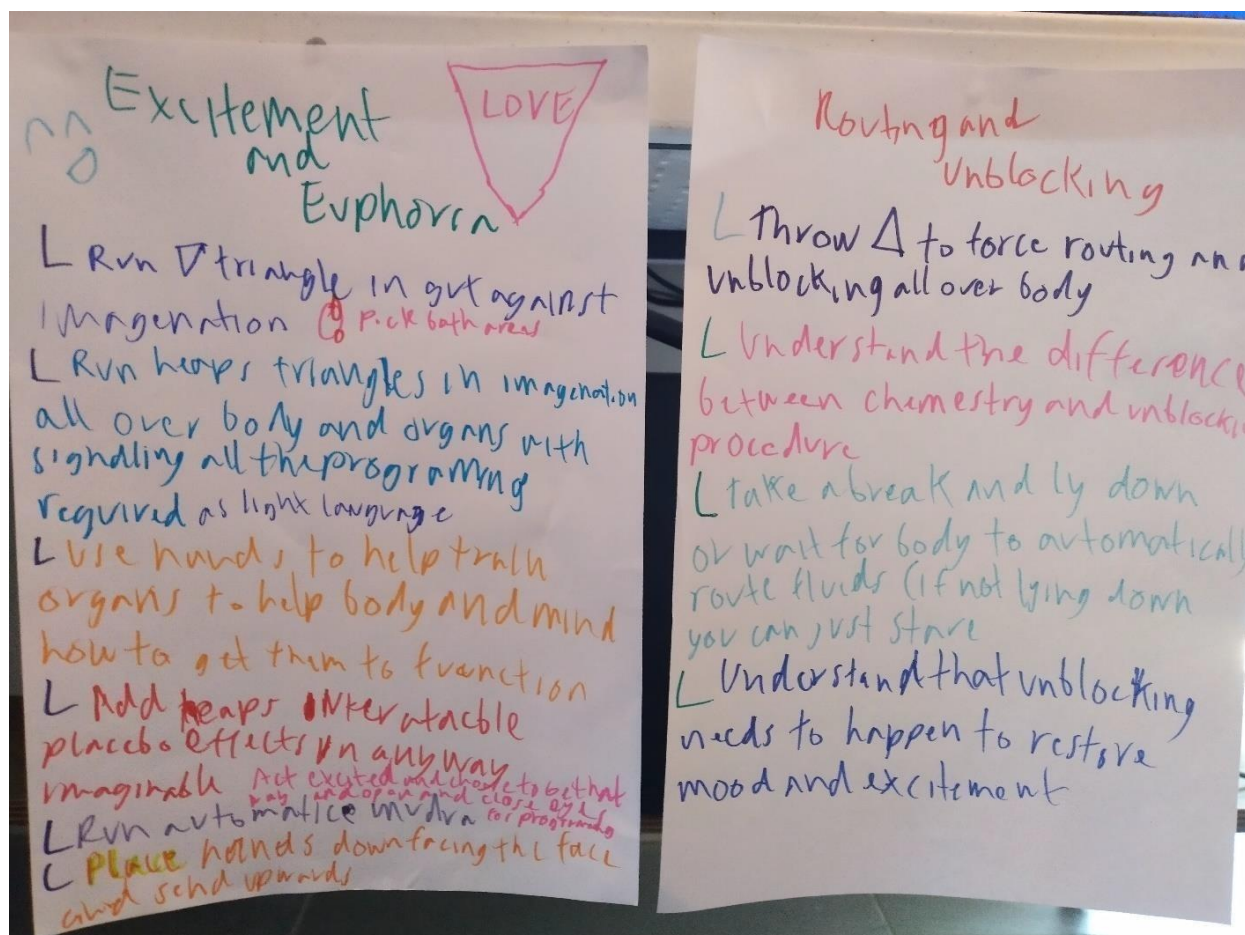 Excitement
and
Euphoria
LOVE
L Run ▽ triangle in gut against
imagenation pick both areas
L Run heaps triangles in imagenation
all over body and organs with
signalling all the programing
required as light language
L Use hands to help train
organs to help body and mind
how to get them to function
L Add heaps
placebo effects in anyway
imaginable Act excited and chose to be that
way and open and close eyes
L Run automatice mudra for programing
L Place hands down facing the face
and send upwards
Routing and
Unblocking
L Throw △ to force routing an
unblocking all over body
L Understand the difference
between chemestry and unblocki
procedure
L take a break and ly down
or wait for body to automaticall
route fluids (if not lying down
you can just stare
L Understand that unblocking
needs to happen to restore
mood and excitement